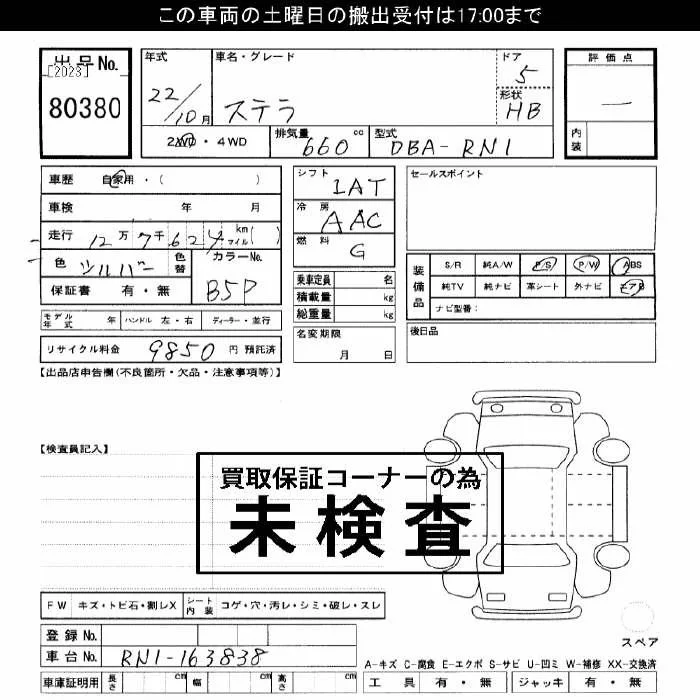 この車両の土曜日の搬出受付は17:00まで
出品No.
[2023]
80380
年式
22/10月
車名・グレード
ステラ
ドア
5
形状
HB
評価点
—
内装
2WD・4WD
排気量 660 cc
型式 DBA-RN1
車歴 自家用・( )
車検 年 月
走行 12万7千624 km マイル( )
色 シルバー
色替
カラーNo.
B5P
保証書 有・無
シフト
IAT
冷房
AAC
燃料
G
乗車定員 名
積載量 kg
総重量 kg
セールスポイント
装備品
S/R 純A/W P/S P/W ABS
純TV 純ナビ 革シート 外ナビ エアB
ナビ型番:
モデル年式 年 ハンドル 左・右 ディーラー・並行
名変期限
月 日
後日品
リサイクル料金 9850 円 預託済
【出品店申告欄(不良箇所・欠品・注意事項等)】
【検査員記入】
買取保証コーナーの為
未検査
FW キズ・トビ石・割レX シート内装 コゲ・穴・汚レ・シミ・破レ・スレ
登録No.
車台No. RN1-163838
車庫証明用 長さ cm 幅 cm 高さ cm
スペア
A-キズ C-腐食 E-エクボ S-サビ U-凹ミ W-補修 XX-交換済
工具 有・無 ジャッキ 有・無